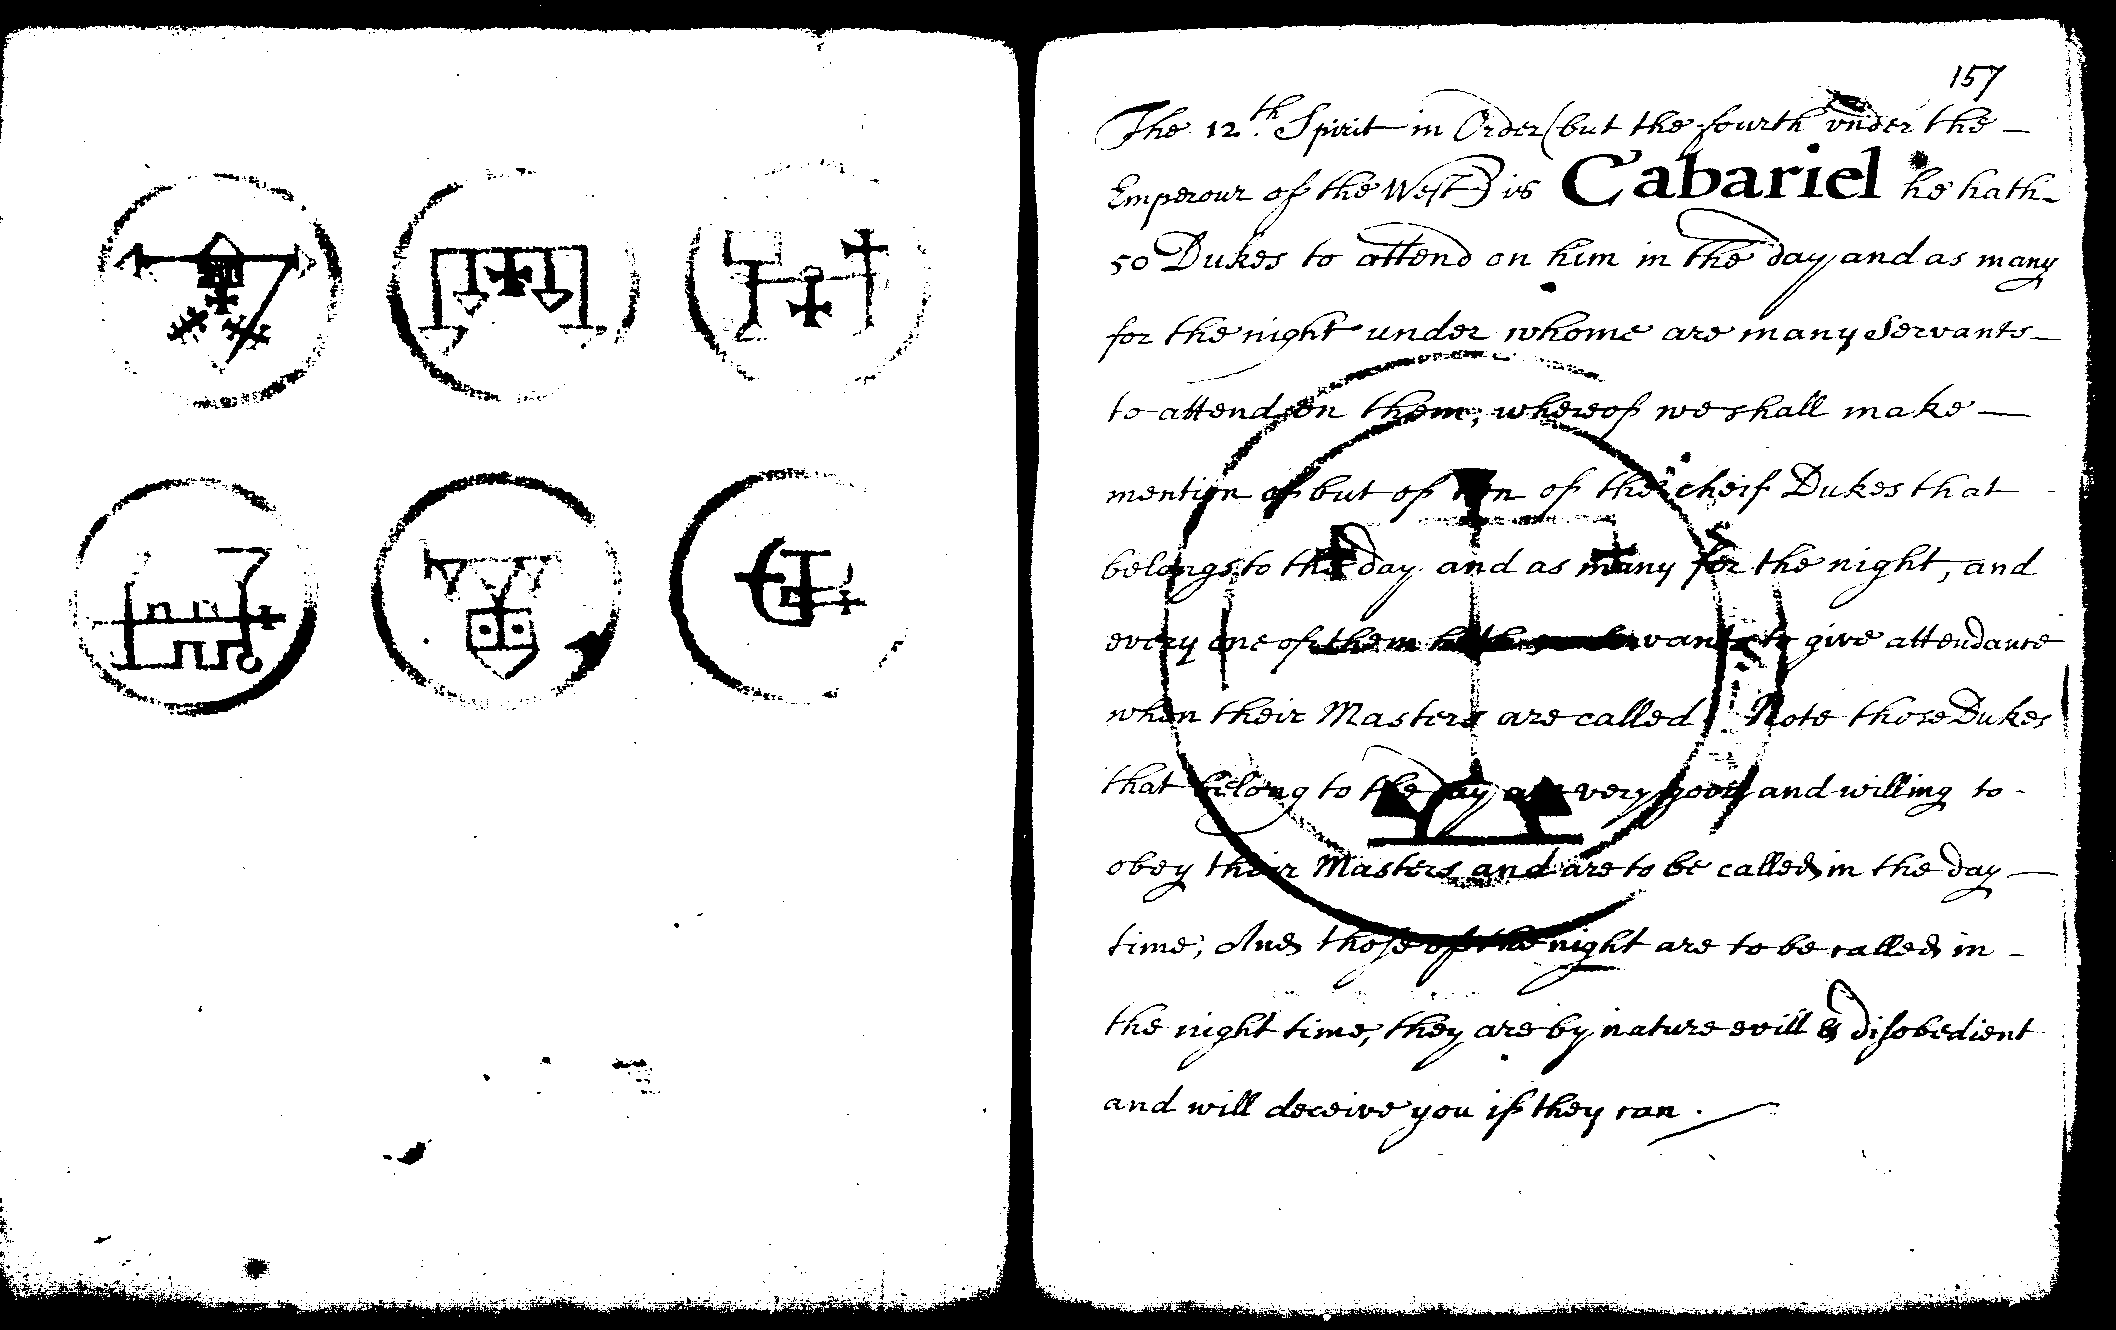 157
The 12th. Spirit in Order (but the fourth under the
Emperour of the West) is Cabariel he hath
50 Dukes to attend on him in the day and as many
for the night under whome are many Servants
to attend on them, whereof we shall make
mention of but of ten of the cheif Dukes that
belongs to the day and as many for the night, and
every one of them hath servants to give attendance
when their Masters are called Note those Dukes
that belong to the day are very good and willing to
obey their Masters and are to be called in the day
time, And those of the night are to be called in
the night time, they are by nature evill & disobedient
and will deceive you if they can.